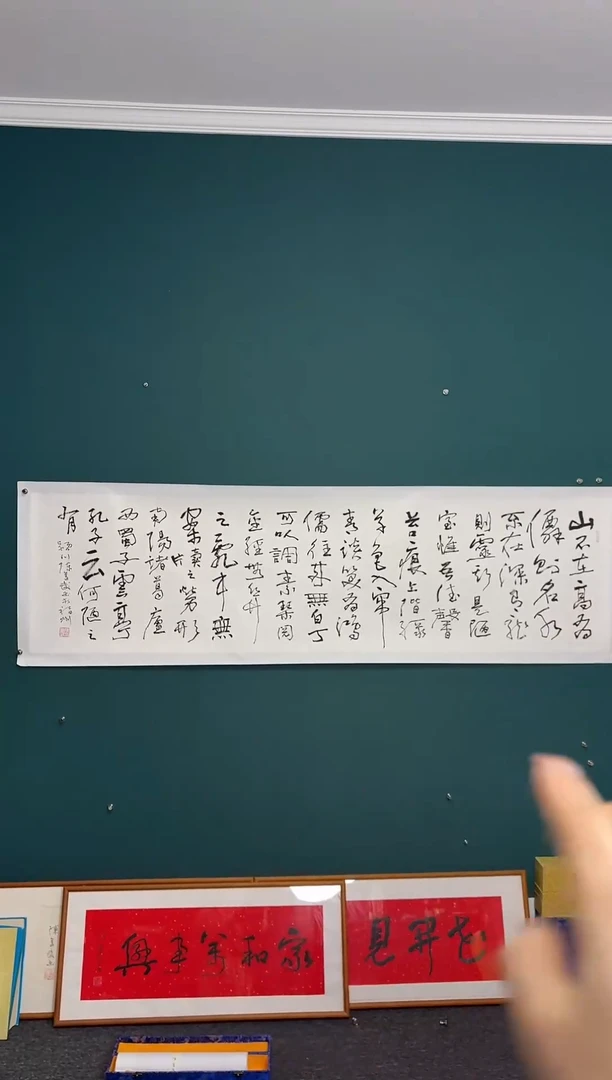 山不在高有
僊則名水
不在深有龍
則靈斯是陋
室惟吾德馨
苔痕上階綠
草色入簾
青談笑有鴻
儒往来無白丁
可以調素琴閱
金經無絲竹
之亂耳無
案牘之勞形
南陽諸葛廬
西蜀子雲亭
孔子云何陋之
有
家和萬事興
花開見